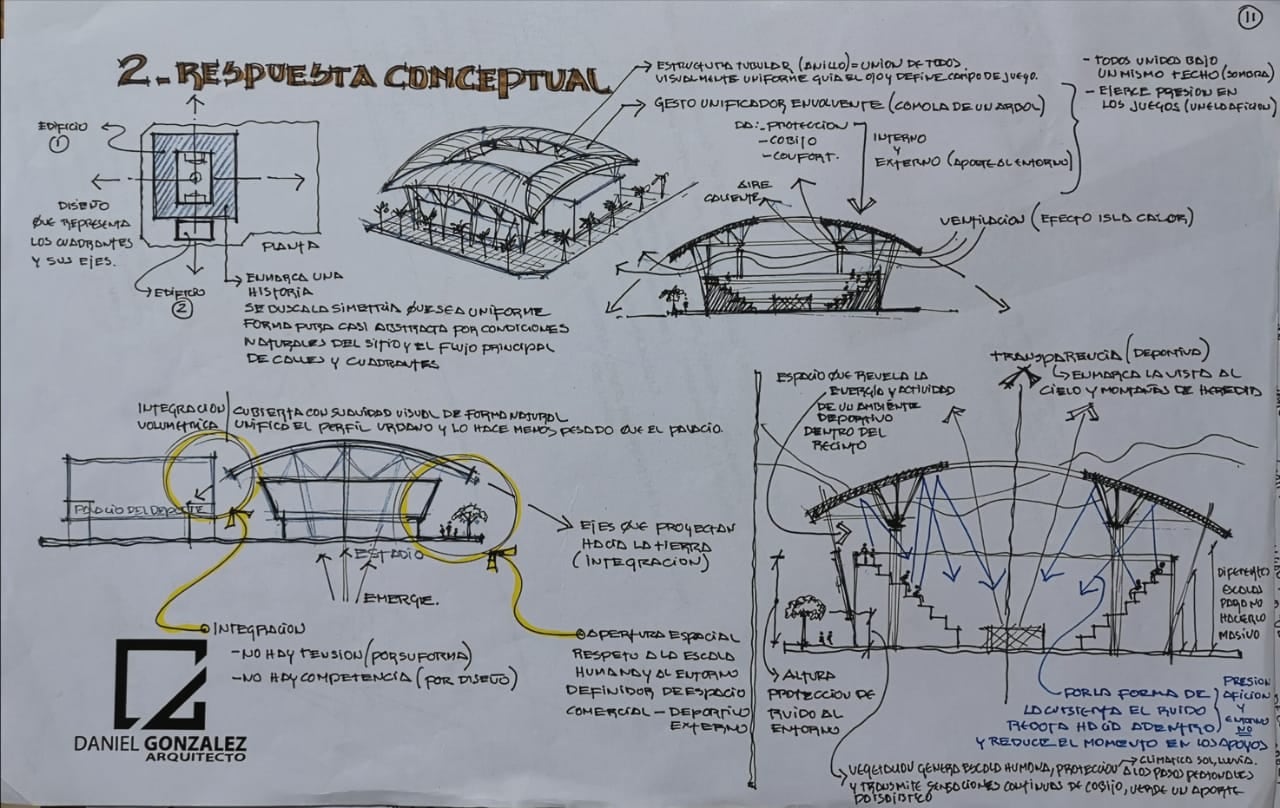 11
2.- RESPUESTA CONCEPTUAL
ESTRUCTURA TUBULAR (ANILLO) = UNION DE TODOS.
VISUALMENTE UNIFORME GUIA EL OJO Y DEFINE CAMPO DE JUEGO.
GESTO UNIFICADOR ENVOLVENTE (COMO LA DE UN ARBOL)
DA: - PROTECCION
- COBIJO
- CONFORT.
INTERNO
Y
EXTERNO (APORTE AL ENTORNO)
- TODOS UNIDOS BAJO
UN MISMO TECHO (SOMBRA)
- EJERCE PRESION EN
LOS JUEGOS (UNE LO AFICION)
EDIFICIO
1
DISEÑO
QUE REPRESENTA
LOS CUADRANTES
Y SUS EJES.
PLANTA
EDIFICIO
2
ENMARCA UNA
HISTORIA
SE BUSCA LA SIMETRIA QUE SEA UNIFORME
FORMA PURA CASI ABSTRACTA POR CONDICIONES
NATURALES DEL SITIO Y EL FLUJO PRINCIPAL
DE CALLES Y CUADRANTES
AIRE
CALIENTE
VENTILACION (EFECTO ISLA CALOR)
INTEGRACION
VOLUMETRICA
CUBIERTA CON SUAVIDAD VISUAL DE FORMA NATURAL
UNIFICA EL PERFIL URBANO Y LO HACE MENOS PESADO QUE EL PALACIO.
PALACIO DEL DEPORTE
ESTADIO
EMERGE.
EJES QUE PROYECTAN
HACIA LA TIERRA
(INTEGRACION)
INTEGRACION
- NO HAY TENSION (POR SU FORMA)
- NO HAY COMPETENCIA (POR DISEÑO)
APERTURA ESPACIAL
RESPETO A LA ESCALA
HUMANA Y AL ENTORNO
DEFINIDOR DE ESPACIO
COMERCIAL - DEPORTIVO
EXTERNO
DANIEL GONZALEZ
ARQUITECTO
ESPACIO QUE REVELA LA
ENERGIA Y ACTIVIDAD
DE UN AMBIENTE
DEPORTIVO
DENTRO DEL
RECINTO
TRANSPARENCIA (DEPORTIVA)
ENMARCA LA VISTA AL
CIELO Y MONTAÑAS DE HEREDIA
DIFERENTES
ESCALAS
PARA NO
HACERLO
MASIVO
ALTURA
PROTECCION DE
RUIDO AL
ENTORNO
POR LA FORMA DE
LA CUBIERTA EL RUIDO
REBOTA HACIA ADENTRO
Y REDUCE EL MOMENTO EN LOS APOYOS
PRESION
AFICION
Y
ENTORNO
NO
VEGETACION GENERA ESCALA HUMANA, PROTECCION A LOS PASOS PEATONALES
CLIMATICA SOL, LLUVIA.
Y TRANSMITE SENSACIONES CONTINUAS DE COBIJO, VERDE UN APORTE
PAISAJISTICO